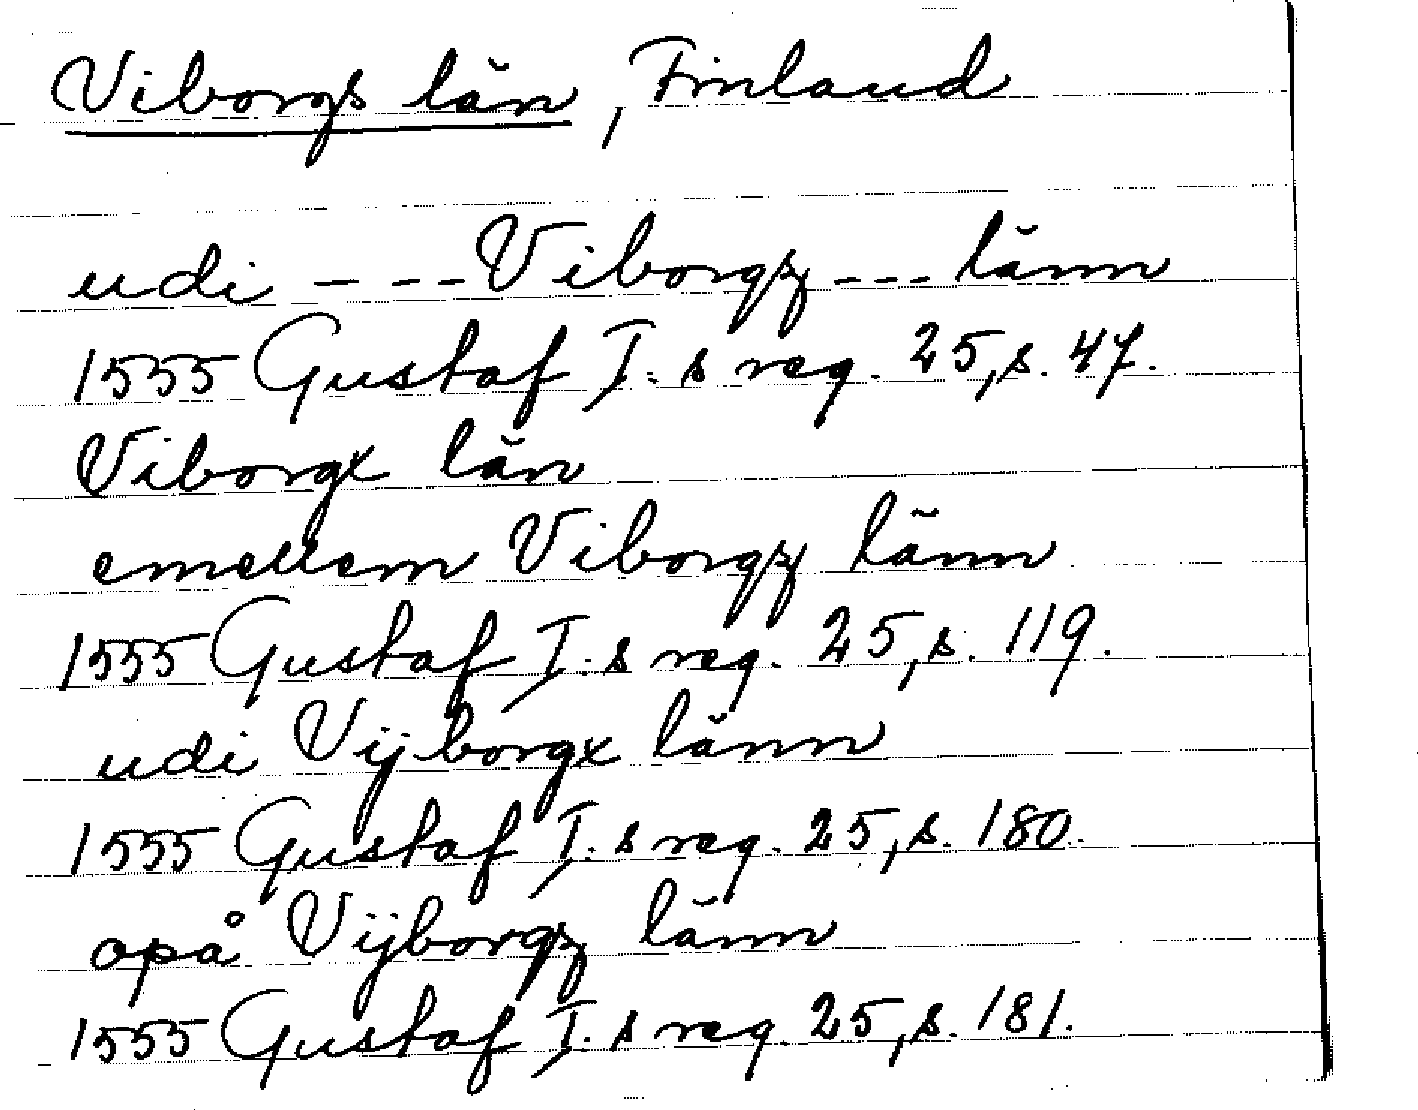 Viborgs län, Finland
udi --- Viborgz --- länn
1555 Gustaf I:s reg. 25, s. 47.
Viborgx län
emellem Viborgz länn
1555 Gustaf I:s reg. 25, s. 119.
udi Vijborgx länn
1555 Gustaf I:s reg. 25, s. 180.
opå Vijborgz länn
1555 Gustaf I:s reg. 25, s. 181.